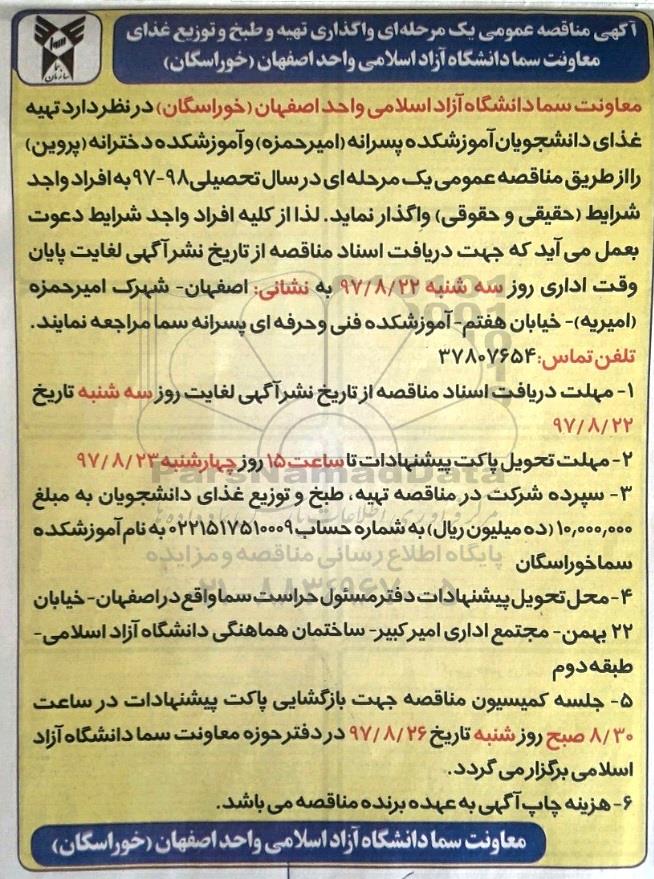 آگهی مناقصه عمومی یک مرحله‌ای واگذاری تهیه و طبخ و توزیع غذای
معاونت سما دانشگاه آزاد اسلامی واحد اصفهان (خوراسگان)
سما
سازمان
معاونت سما دانشگاه آزاد اسلامی واحد اصفهان (خوراسگان) در نظر دارد تهیه
غذای دانشجویان آموزشکده پسرانه (امیرحمزه) و آموزشکده دخترانه (پروین)
را از طریق مناقصه عمومی یک مرحله ای در سال تحصیلی ۹۸-۹۷ به افراد واجد
شرایط (حقیقی و حقوقی) واگذار نماید. لذا از کلیه افراد واجد شرایط دعوت
بعمل می آید که جهت دریافت اسناد مناقصه از تاریخ نشر آگهی لغایت پایان
وقت اداری روز سه شنبه ۹۷/۸/۲۲ به نشانی: اصفهان- شهرک امیرحمزه
(امیریه)- خیابان هفتم- آموزشکده فنی وحرفه ای پسرانه سما مراجعه نمایند.
تلفن تماس: ۳۷۸۰۷۶۵۴
۱- مهلت دریافت اسناد مناقصه از تاریخ نشر آگهی لغایت روز سه شنبه تاریخ
۹۷/۸/۲۲
۲- مهلت تحویل پاکت پیشنهادات تا ساعت ۱۵ روز چهارشنبه ۹۷/۸/۲۳
۳- سپرده شرکت در مناقصه تهیه، طبخ و توزیع غذای دانشجویان به مبلغ
۱۰,۰۰۰,۰۰۰ (ده میلیون ریال) به شماره حساب ۰۲۲۱۵۱۷۵۱۰۰۰۹ به نام آموزشکده
سما خوراسگان
۴- محل تحویل پیشنهادات دفتر مسئول حراست سما واقع در اصفهان- خیابان
۲۲ بهمن- مجتمع اداری امیر کبیر- ساختمان هماهنگی دانشگاه آزاد اسلامی-
طبقه دوم
۵- جلسه کمیسیون مناقصه جهت بازگشایی پاکت پیشنهادات در ساعت
۸/۳۰ صبح روز شنبه تاریخ ۹۷/۸/۲۶ در دفتر حوزه معاونت سما دانشگاه آزاد
اسلامی برگزار می گردد.
۶- هزینه چاپ آگهی به عهده برنده مناقصه می باشد.
معاونت سما دانشگاه آزاد اسلامی واحد اصفهان (خوراسگان)
ParsNamadData
پایگاه اطلاع رسانی مناقصه و مزایده